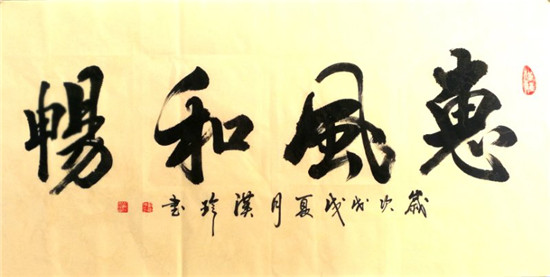 惠風和暢
歲次戊戌夏月漢珍书